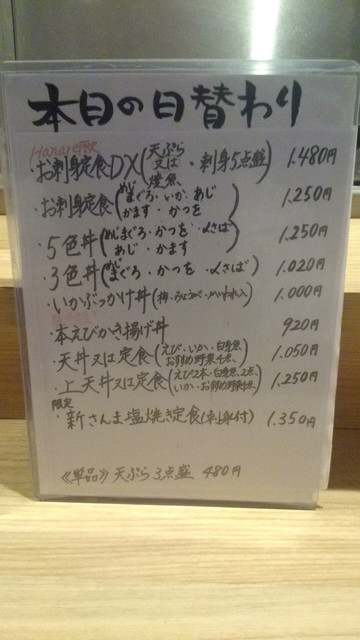 本日の日替わり
Hanare限定
・お刺身定食DX(天ぷら 又は 焼魚・刺身5点盛) 1.480円
・お刺身定食(めじまぐろ・いか・あじ かます・かつを) 1.250円
・5色丼(めじまぐろ・かつを・〆さば あじ・かます) 1.250円
・3色丼(めじまぐろ・かつを・〆さば) 1.020円
・いかぶっかけ丼 1.000円
・本えびかき揚げ丼 920円
・天丼又は定食(えび・いか・白身魚、おすすめ野菜4点) 1.050円
・上天丼又は定食(えび2本・白身魚2点、いか・おすすめ野菜4点) 1.250円
限定
・新さんま塩焼き定食(お刺身付) 1.350円
《単品》天ぷら3点盛 480円